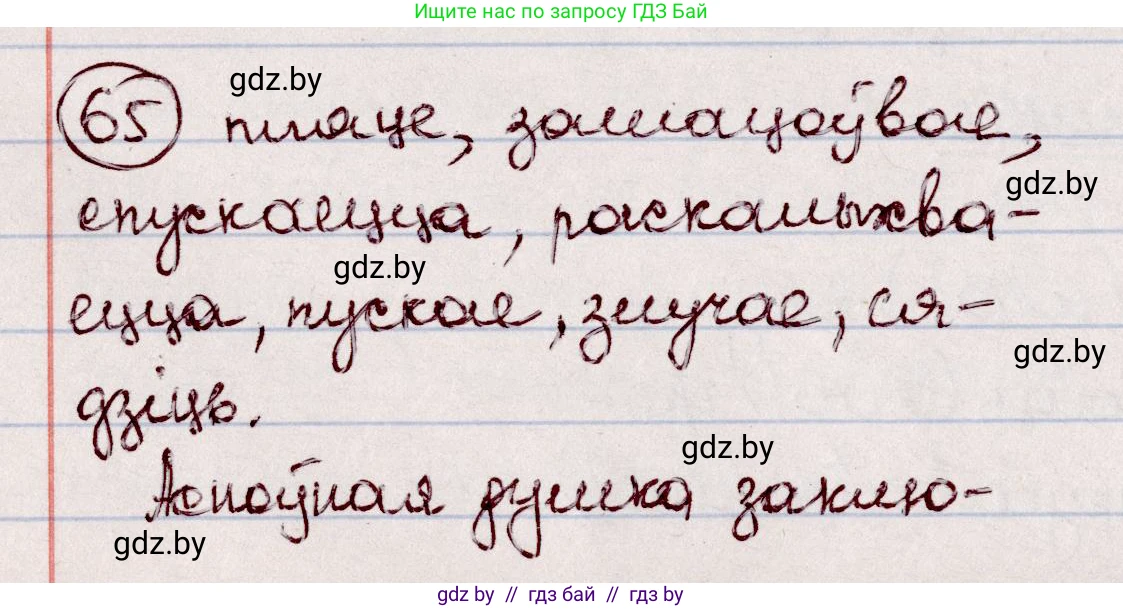 Ищите нас по запросу ГДЗ Бай
gdz.by
65 пляце, замацоўвае,
gdz.by
спускаецца, раскалыхва-
gdz.by
ецца, пускае, злучае, ся-
gdz.by
дзіць.
gdz.by
Асноўная думка заклю-
gdz.by
gdz.by // гдз бай // гдз by